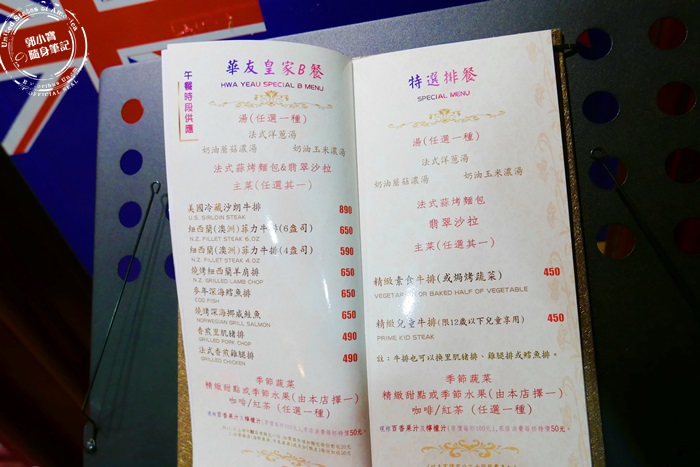 United States of America
郭小寶
隨身筆記
OFFICIAL SEAL
午餐時段供應
華友皇家B餐
HWA YEAU SPECIAL B MENU
湯(任選一種)
法式洋蔥湯
奶油蘑菇濃湯 奶油玉米濃湯
法式蒜烤麵包&翡翠沙拉
主菜(任選其一)
美國冷藏沙朗牛排 890
U.S. SIRLOIN STEAK
紐西蘭(澳洲)菲力牛排(6盎司) 650
N.Z. FILLET STEAK 6.OZ
紐西蘭(澳洲)菲力牛排(4盎司) 590
N.Z. FILLET STEAK 4.OZ
燒烤紐西蘭羊肩排 650
N.Z. GRILLED LAMB CHOP
多年深海鱈魚排 650
COD FISH
燒烤深海挪威鮭魚 650
NORWEGIAN GRILL SALMON
香煎里肌豬排 490
GRILLED PORK CHOP
法式香煎雞腿排 490
GRILLED CHICKEN
季節蔬菜
精緻甜點或季節水果(由本店擇一)
咖啡/紅茶 (任選一種)
現榨百香果汁及檸檬汁(原價每杯100元),來店消費每杯特價50元。
特選排餐
SPECIAL MENU
湯(任選一種)
法式洋蔥湯
奶油蘑菇濃湯 奶油玉米濃湯
法式蒜烤麵包
翡翠沙拉
主菜(任選其一)
精緻素食牛排(或焗烤蔬菜) 450
VEGETARIAN OR BAKED HALF OF VEGETABLE
精緻兒童牛排(限12歲以下兒童享用) 450
PRIME KID STEAK
註:牛排也可以換里肌豬排、雞腿排或鱈魚排。
季節蔬菜
精緻甜點或季節水果(由本店擇一)
咖啡/紅茶 (任選一種)
現榨百香果汁及檸檬汁(原價每杯100元),來店消費每杯特價50元。